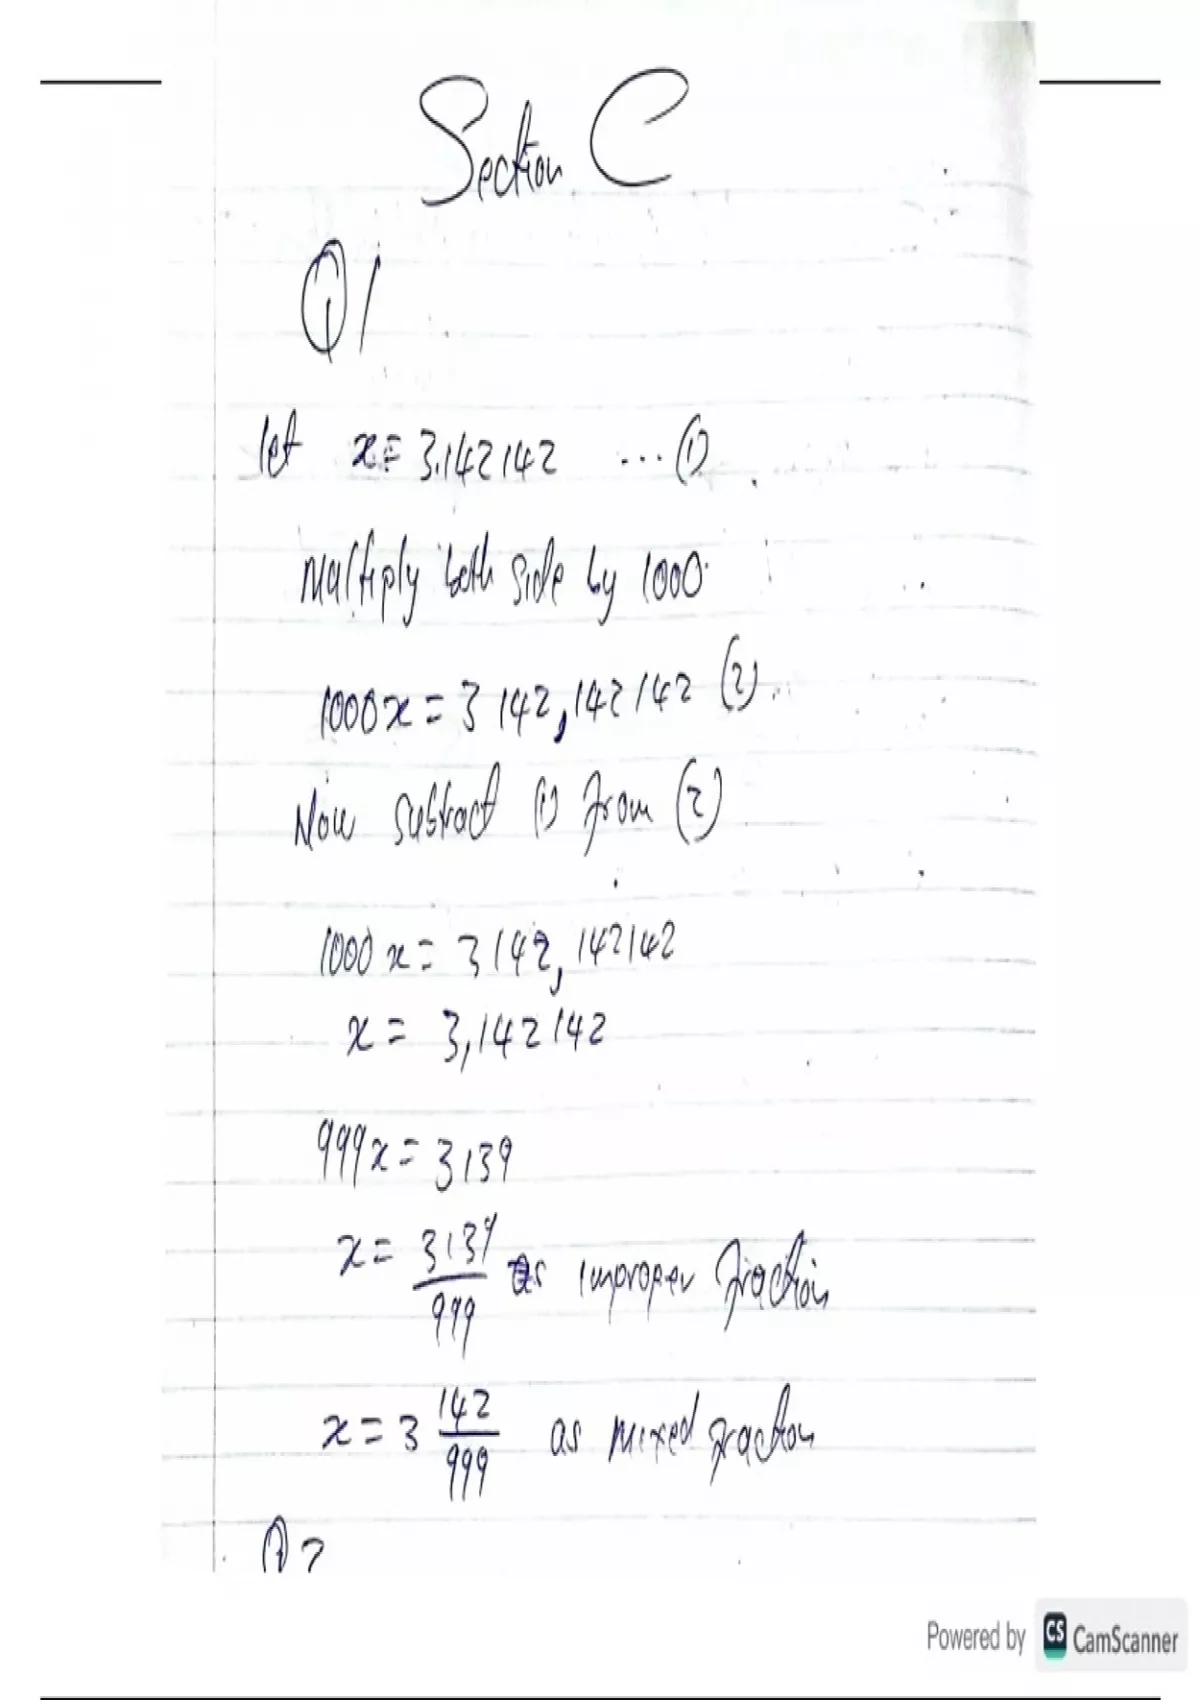 Section C
Q1
let x = 3.142142 ... (1)
Multiply both side by 1000.
1000x = 3142,142142 (2)
Now subtract (1) from (2)
1000x = 3142,142142
x = 3,142142
999x = 3139
x = 3139/999 as improper fraction
x = 3 142/999 as mixed fraction
Q2
Powered by CS CamScanner